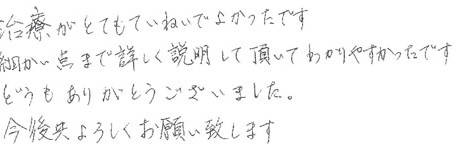 治療がとてもていねいでよかったです
細かい点まで詳しく説明して頂いてわかりやすかったです
どうもありがとうございました。
今後共よろしくお願い致します